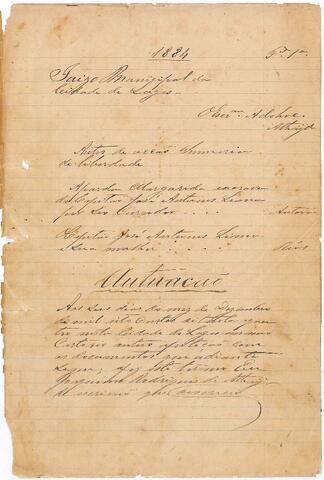 1884
Juizo Municipal da
Cidade de Lages
Autos de acção Summaria
de liberdade
A parda Margarida escrava
do Capitão José Antonio Lima
por seo Curador . . . . Autora
Capitão José Antonio Lima
e sua mulher . . . . Réos
Autuação
Aos seis dias do mez de Dezembro
de mil oito centos e oitenta e qua
tro nesta Cidade de Lages em meo
Cartorio autoo a petição com
os documentos que adiante
segue; fiz este termo Eu
Joaquim Rodrigues de Athayde
escrivão que escrevi